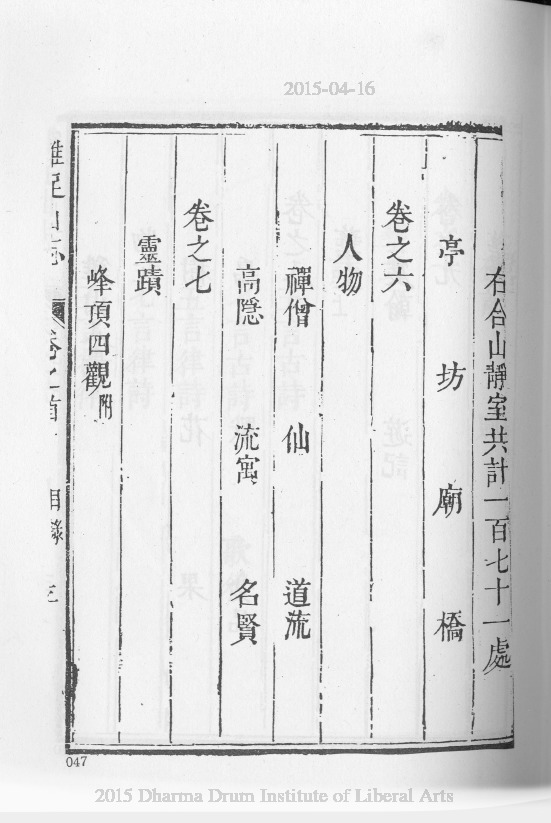 2015-04-16
右合山靜室共計一百七十一處
亭　坊　廟　橋
卷之六
人物
禪僧　仙　道流
高隱　流寓　名賢
卷之七
靈蹟
峰頂四觀附
雞足山志　卷之首　目錄　三
047
2015 Dharma Drum Institute of Liberal Arts